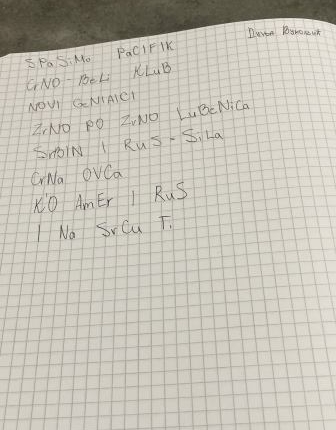 SPaSiMo PaCIFIK
CrNO-BeLi KLuB
NOVI GeNIAlCI
ZrNO PO ZrNO LuBeNiCa
SrBIN I RuS-SiLa
CrNa OVCa
K'O AmEr I RuS
I Na SrCu Ti